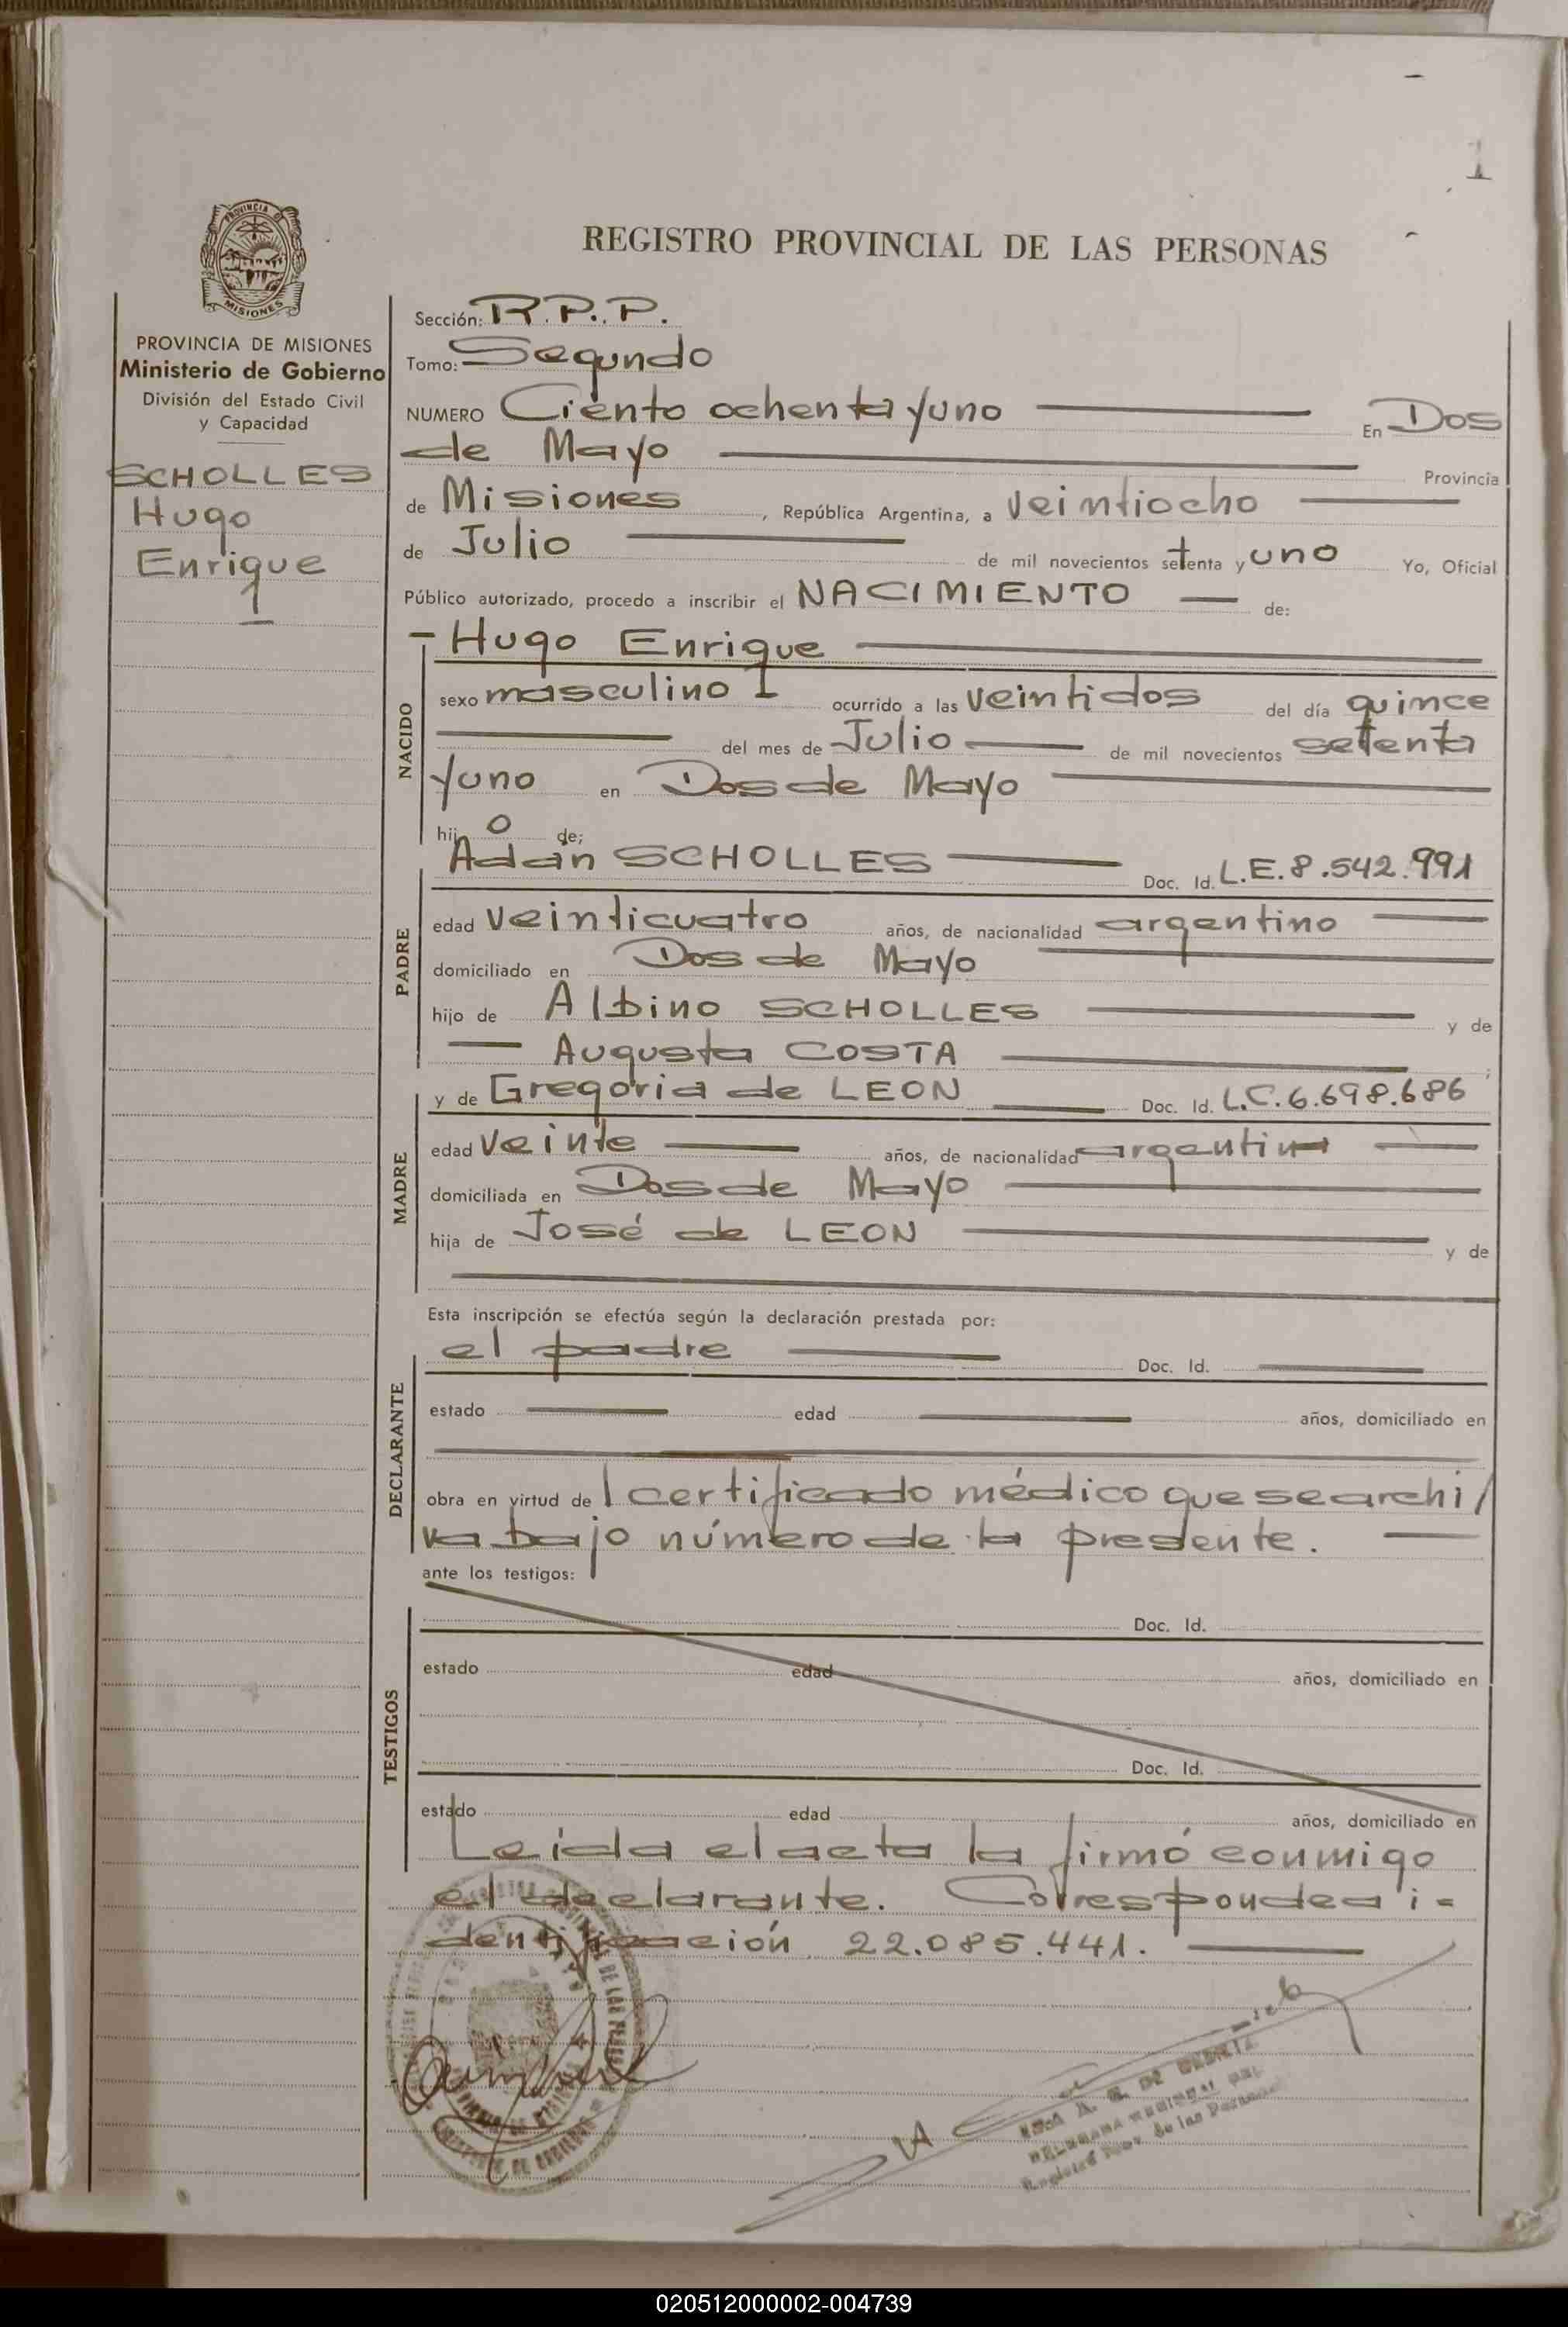 1
REGISTRO PROVINCIAL DE LAS PERSONAS
PROVINCIA DE
MISIONES
PROVINCIA DE MISIONES
Ministerio de Gobierno
División del Estado Civil
y Capacidad
SCHOLLES
Hugo
Enrique
1
Sección: R.P.P.
Tomo: Segundo
NUMERO Ciento ochenta y uno En Dos
de Mayo Provincia
de Misiones, República Argentina, a veintiocho
de Julio de mil novecientos setenta y uno Yo, Oficial
Público autorizado, procedo a inscribir el NACIMIENTO de:
Hugo Enrique
NACIDO
sexo masculino 1 ocurrido a las veintidos del día quince
del mes de Julio de mil novecientos setenta
y uno en Dos de Mayo
hijo de;
Adán SCHOLLES Doc. Id. L.E. 8.542.991
PADRE
edad veinticuatro años, de nacionalidad argentino
domiciliado en Dos de Mayo
hijo de Albino SCHOLLES y de
Augusta COSTA
y de Gregoria de LEON Doc. Id. L.C. 6.698.686
MADRE
edad veinte años, de nacionalidad argentina
domiciliada en Dos de Mayo
hija de José de LEON y de
Esta inscripción se efectúa según la declaración prestada por:
el padre Doc. Id.
DECLARANTE
estado edad años, domiciliado en
obra en virtud de l certificado médico que se archi/
va bajo número de la presente.
ante los testigos:
Doc. Id.
TESTIGOS
estado edad años, domiciliado en
Doc. Id.
estado edad años, domiciliado en
Leída el acta la firmó conmigo
el declarante. Corresponde a i=
dentificación 22.085.441.
020512000002-004739